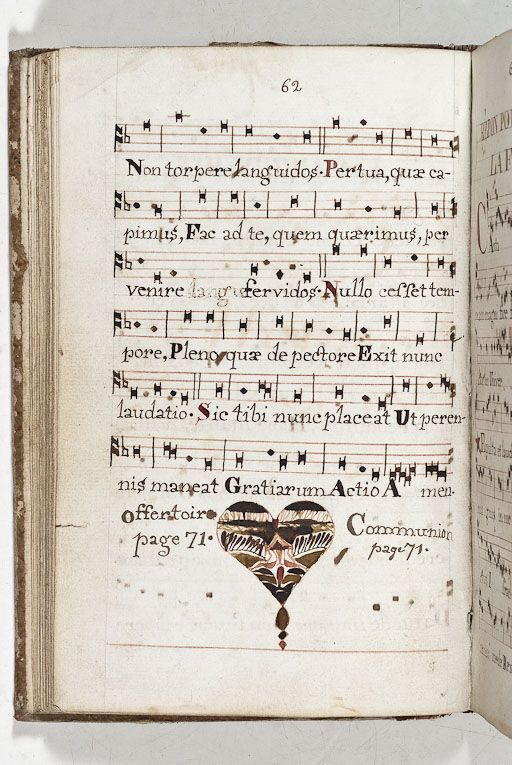 62
Non torpere languidos. Per tua, quæ ca-
pimus, Fac ad te, quem quærimus, per
venire fervidos. Nullo cesset tem-
pore, Pleno quæ de pectore Exit nunc
laudatio. Sic tibi nunc placeat Ut peren-
nis maneat Gratiarum Actio A men.
Offertoire
page 71.
Communion
page 71.